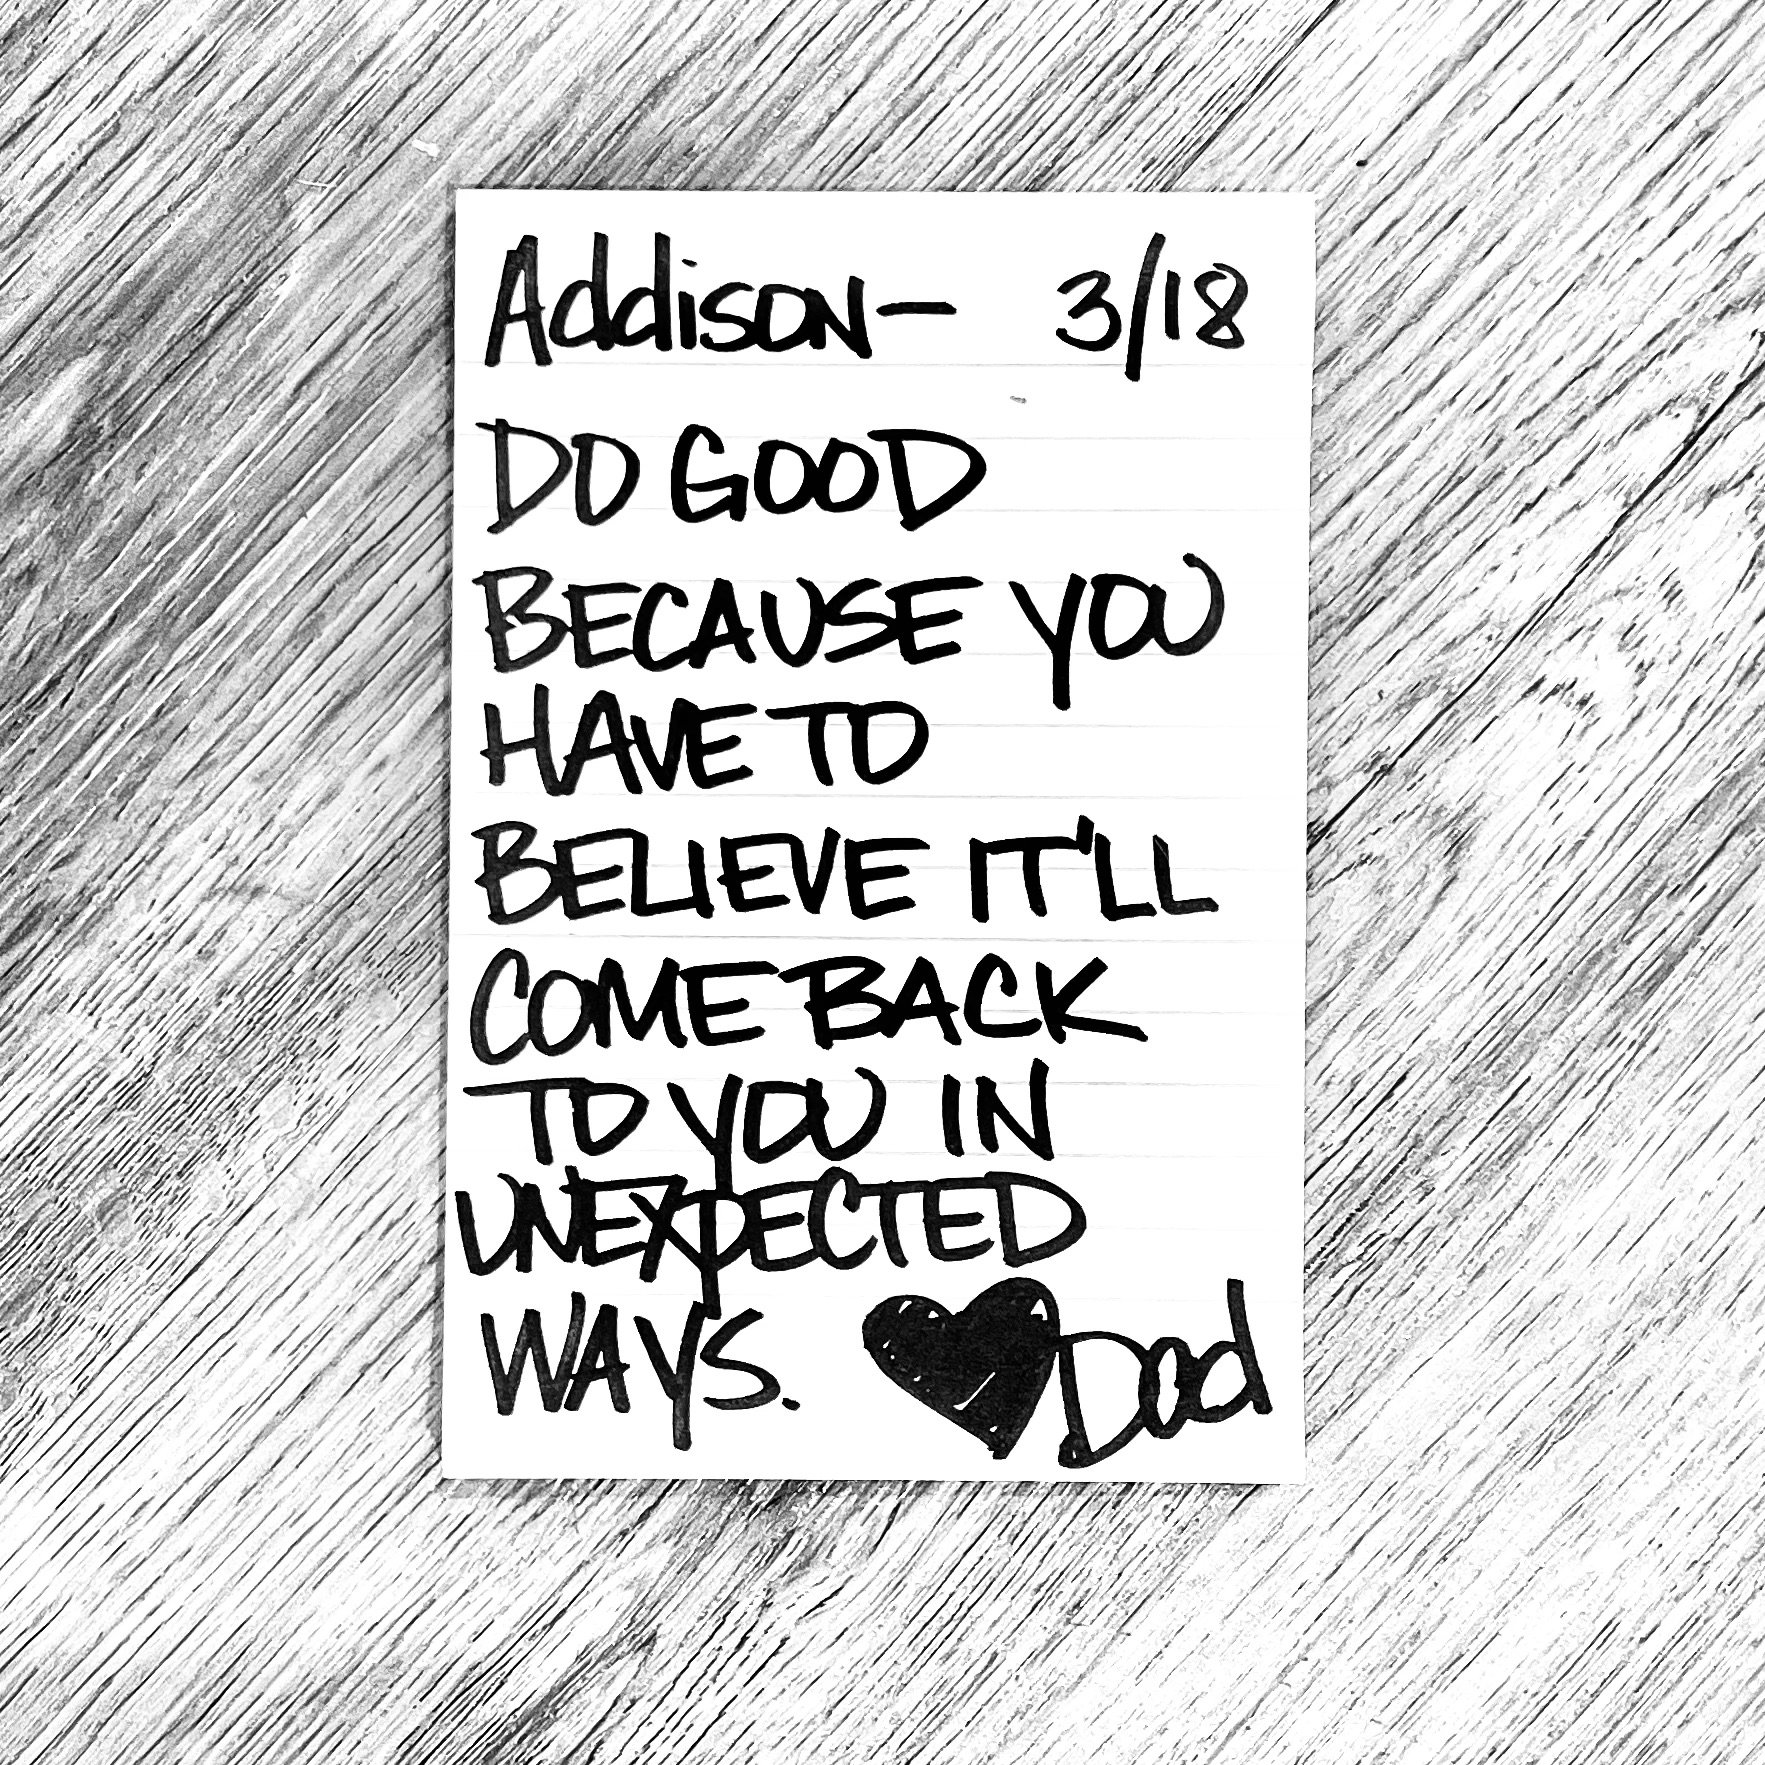 Addison— 3/18
DO GOOD
BECAUSE YOU
HAVE TO
BELIEVE IT'LL
COME BACK
TO YOU IN
UNEXPECTED
WAYS. ♥Dad